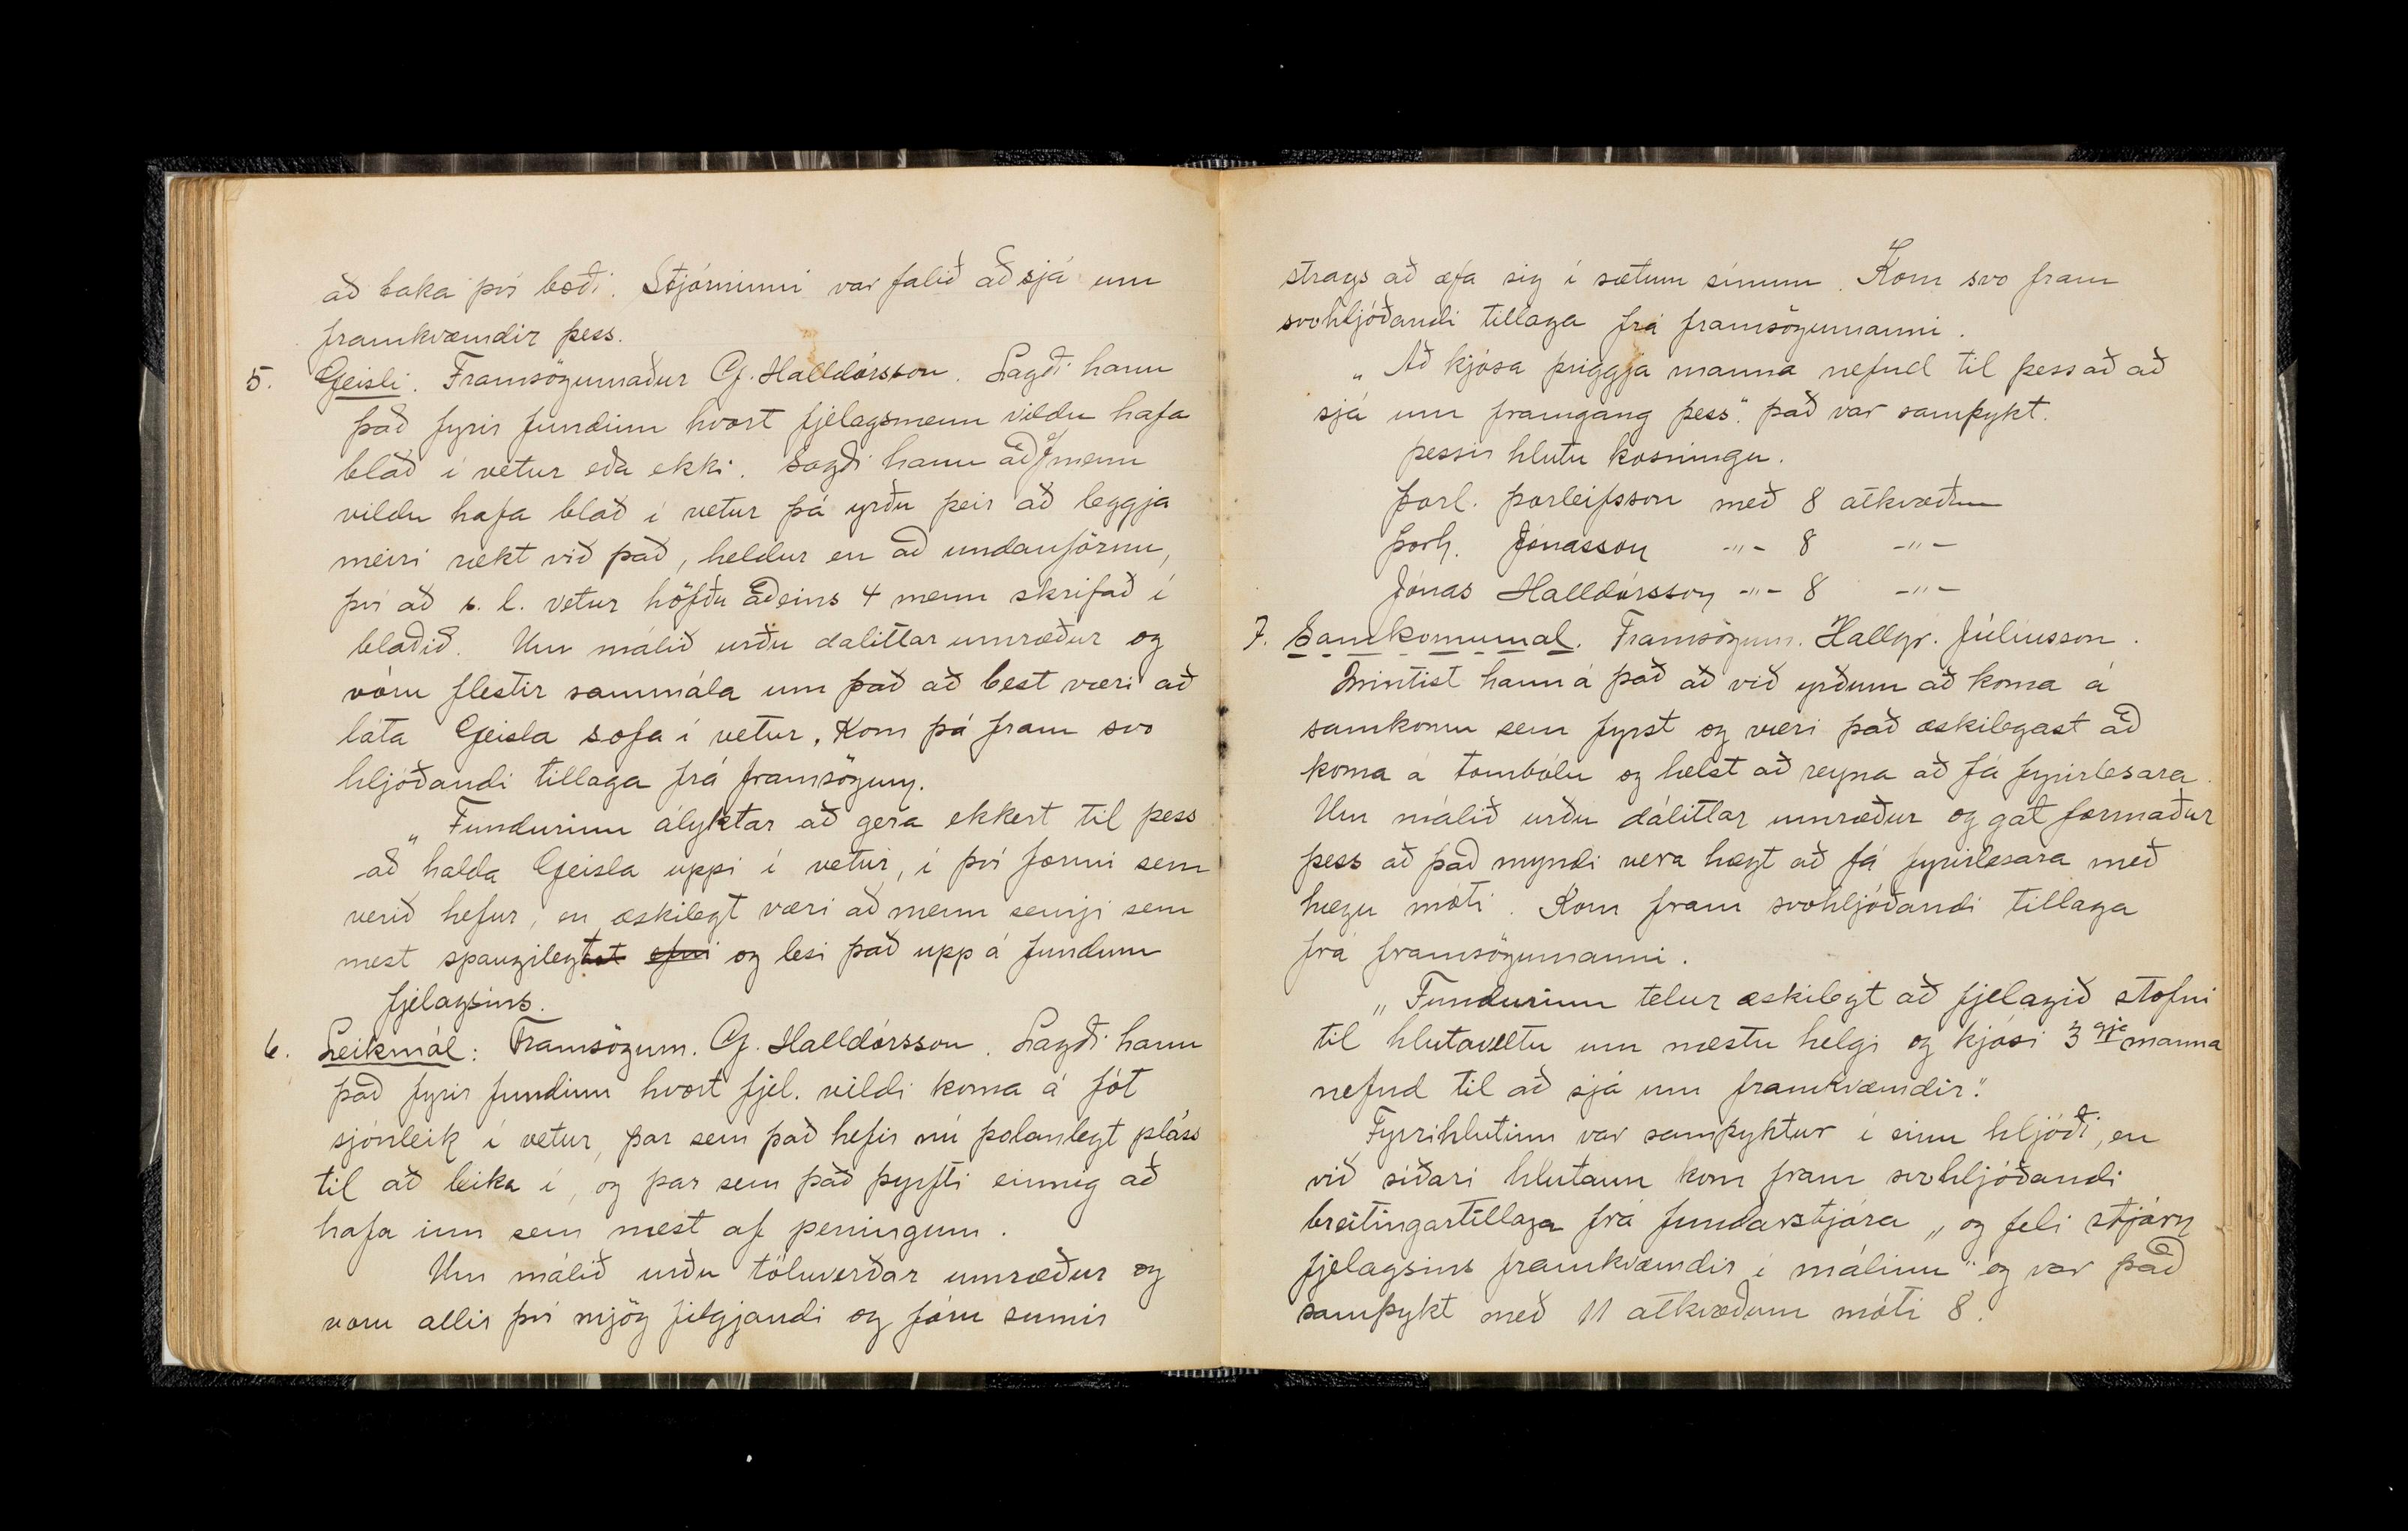 að taka því boði. Stjórninni var falið að sjá um
framkvæmdir þess.
5. Geisli. Framsögumaður G. Halldórsson. Lagði hann
það fyrir fundinn hvort fjelagsmenn vildu hafa
blað í vetur eða ekki. Sagði hann að ef menn
vildu hafa blað í vetur þá yrðu þeir að leggja
meiri rækt við það, heldur en að undanförnu,
því að s. l. vetur höfðu aðeins 4 menn skrifað í
blaðið. Um málið urðu dalitlar umræður og
vóru flestir sammála um það að best væri að
láta Geisla sofa í vetur. Kom þá fram svo
hljóðandi tillaga frá framsögum.
„Fundurinn ályktar að gera ekkert til þess
að halda Geisla uppi í vetur, í því formi sem
verið hefur, en æskilegt væri að menn semji sem
mest spaugilegtast efni og lesi það upp á fundum
fjelagsins.
6. Leikmál: Framsögum. G. Halldórsson. Lagði hann
það fyrir fundinn hvort fjel. vildi koma á fót
sjónleik í vetur, þar sem það hefir nú þolanlegt pláss
til að leika í, og þar sem það þyrfti einnig að
hafa inn sem mest af peningum.
Um málið urðu töluverðar umræður og
voru allir því mjög fylgjandi og fóru sumir
strags að æfa sig í sætum sínum. Kom svo fram
svohljóðandi tillaga frá framsögumanni.
„Að kjósa þriggja manna nefnd til þess að að
sjá um framgang þess". það var samþykt.
þessir hlutu kosningu.
Þorl. Þorleifsson með 8 atkvæðum
Þorh. Jónasson -"- 8 -"-
Jónas Halldórsson -"- 8 -"-
7. Samkomumal. Framsögum. Hallgr. Júlíusson.
Mintist hann á það að við yrðum að koma á
samkomu sem fyrst og væri það æskilegast að
koma á tombólu og helst að reyna að fá fyrirlesara.
Um málið urðu dálitlar umræður og gat formaður
þess að það myndi vera hægt að fá fyrirlesara með
hægu móti. Kom fram svohljóðandi tillaga
frá framsögumanni.
„Fundurinn telur æskilegt að fjelagið stofni
til hlutaveltu um næstu helgi og kjósi 3 gja manna
nefnd til að sjá um framkvæmdir".
Fyrrihlutinn var samþyktur í einu hljóði, en
við síðari hlutann kom fram svohljóðandi
breitingartillaga frá fundarstjóra „og feli stjórn
fjelagsins framkvæmdir í málinu" og var það
samþykt með 11 atkvæðum móti 8.